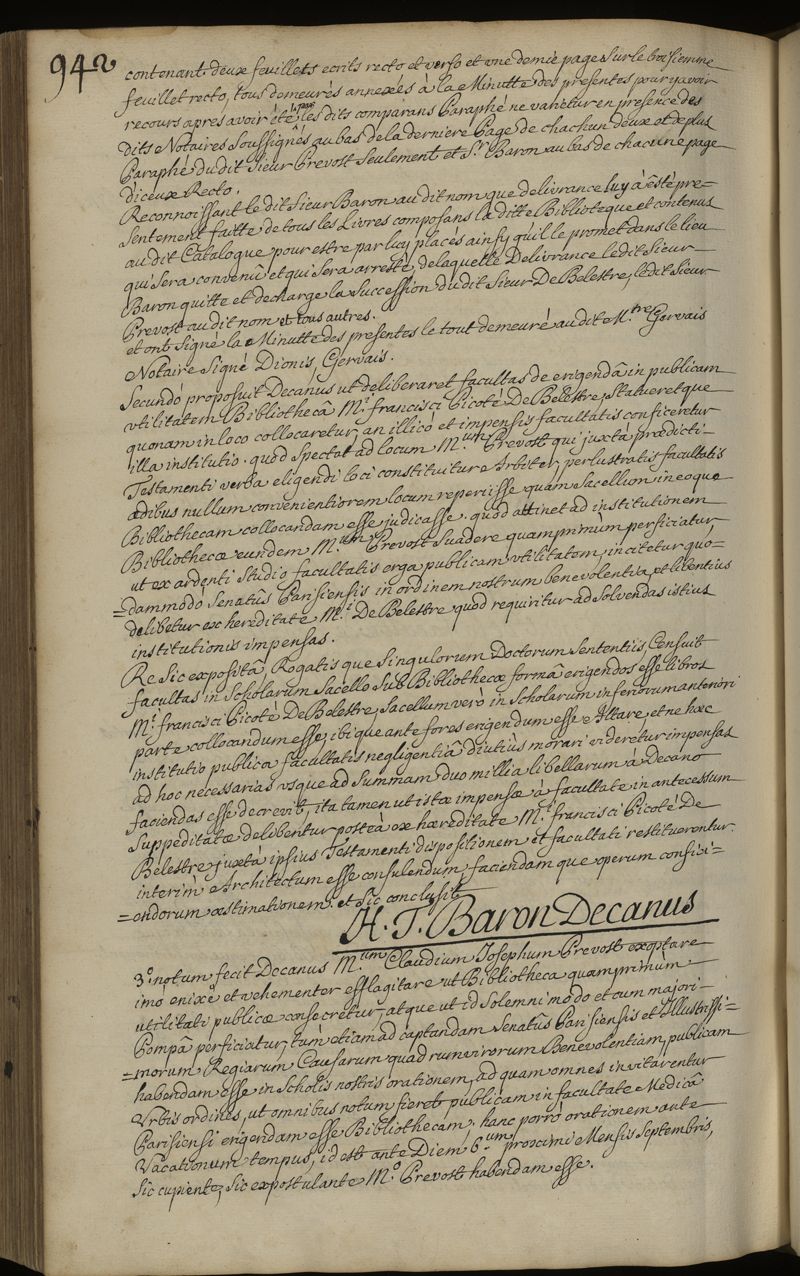 942
contenant deux feuillets ecrits recto et verso et une demie page sur le troisiemme
feuillet recto, tous demeurés annexés à la Minutte des presentes pour y avoir
recours apres avoir été par les dits comparans Paraphé ne varietur en presence des
dits Notaires Soussignés au bas de la derniere Page de chachun deux et de plus
Paraphé du dit Sieur Prevost Seulement et Sr. Baron au bas de chacune page
diceux Recto.
Reconnoissant le dit Sieur Baron au dit nom que delivrance luy à êstè pre=
sentement faitte de tous les Livres composans la ditte Biblioteque et contenus
au dit Catalogue pour estre par luy placés ainsy qu'il le promet dans le lieu
qui sera convenû et qui sera arresté, de laquelle Delivrance le dit Sieur
Baron quitte et decharge la Succession du dit Sieur De Belestre, le dit Sieur
Prevost au dit nom et tous autres.
et ont Signé la Minutte des presentes le tout demeuré au dit Mtre Gervais
Notaire Signé Dionis, Gervais.
Secundó proposuit Decanus ut deliberaret facultas de erigendâ in publicam
utilitatem Bibliothecâ Mi. francisci Picoté De Belestre, statueretque
quonam in loco collocaretur, an illico et impensis facultatis conficeretur
illa institutio. quod Spectat ad locum Mum. Prevost qui juxtà prædicti
Testamenti verba eligendi loci constituitur Arbiter, perlustratis facultatis
ædibus nullum convenientiorem locum reperiisse quam Sacellum in eoque
Bibliothecam collocandam esse judicasse. quod attinet ad institutionem
Bibliothecæ eundem Mum. Prevost Suadere quamprimùm perficiatur
ut ex ardenti Studio facultatis erga publicam utilitatem, incitetur quo=
=dammodó Senatûs Parisiensis in ordinem nostrum benevolentia, et libentius
delibetur ex hereditate Mi. De Belestre quod requiritur ad Solvendas istius
institutionis impensas.
Re Sic expositâ, Rogatis que Singulorum Doctorum Sententiis, Censuit
facultas in Scholarum Sacello Sub Bibliothecæ formâ erigendos esse libros
Mi. francisci Picoté De Belestre, Sacellum verò in Scholarum inferiorum anteriori
parte collocandum esse, ibique ante fores erigendum esse Altare, et ne hæc
institutio publica facultatis negligentiâ diutiùs morari videretur impensas
ad hoc necessarias usque ad Summam duo millia libellarum à Decano
faciendas esse decrevit, ita tamen ut istæ impensæ à facultate in antecessum
Suppeditatæ delibentur posteà ex hæreditate Mi. francisci Picoté De
Belestre juxtà ipsius Testamenti dispositionem et facultati restituerentur.
interim Architectum esse consulendum, faciendam que operum confici=
=endorum æstimationem. et Sic conclusit
H. T. Baron Decanus
3o. notum fecit Decanus Mum Claudium Josephum Prevost exoptare
imo enixè et vehementer efflagitare ut Bibliotheca quamprimùm
utilitati publicæ consecretur, atque ut id Solemni modo et cum majori
Pompâ perficiatur, tùm etiam ad captandam Senatûs Parisiensis et Illustrissi=
=morum Regiarum Causarum quadrumvirorum Benevolentiam, publicam
habendam esse in Scholis nostris orationem, ad quam omnes invitarentur
Urbis ordines, ut omnibus notum fieret publicam in facultate Medicâ
Parisiensi erigendam esse Bibliothecam. hanc porrò orationem ante
Vacationum tempus, id est ante Diem 6um. proximi Mensis Septembris,
Sic cupiente, Sic expostulante Mo. Prevost habendam esse.